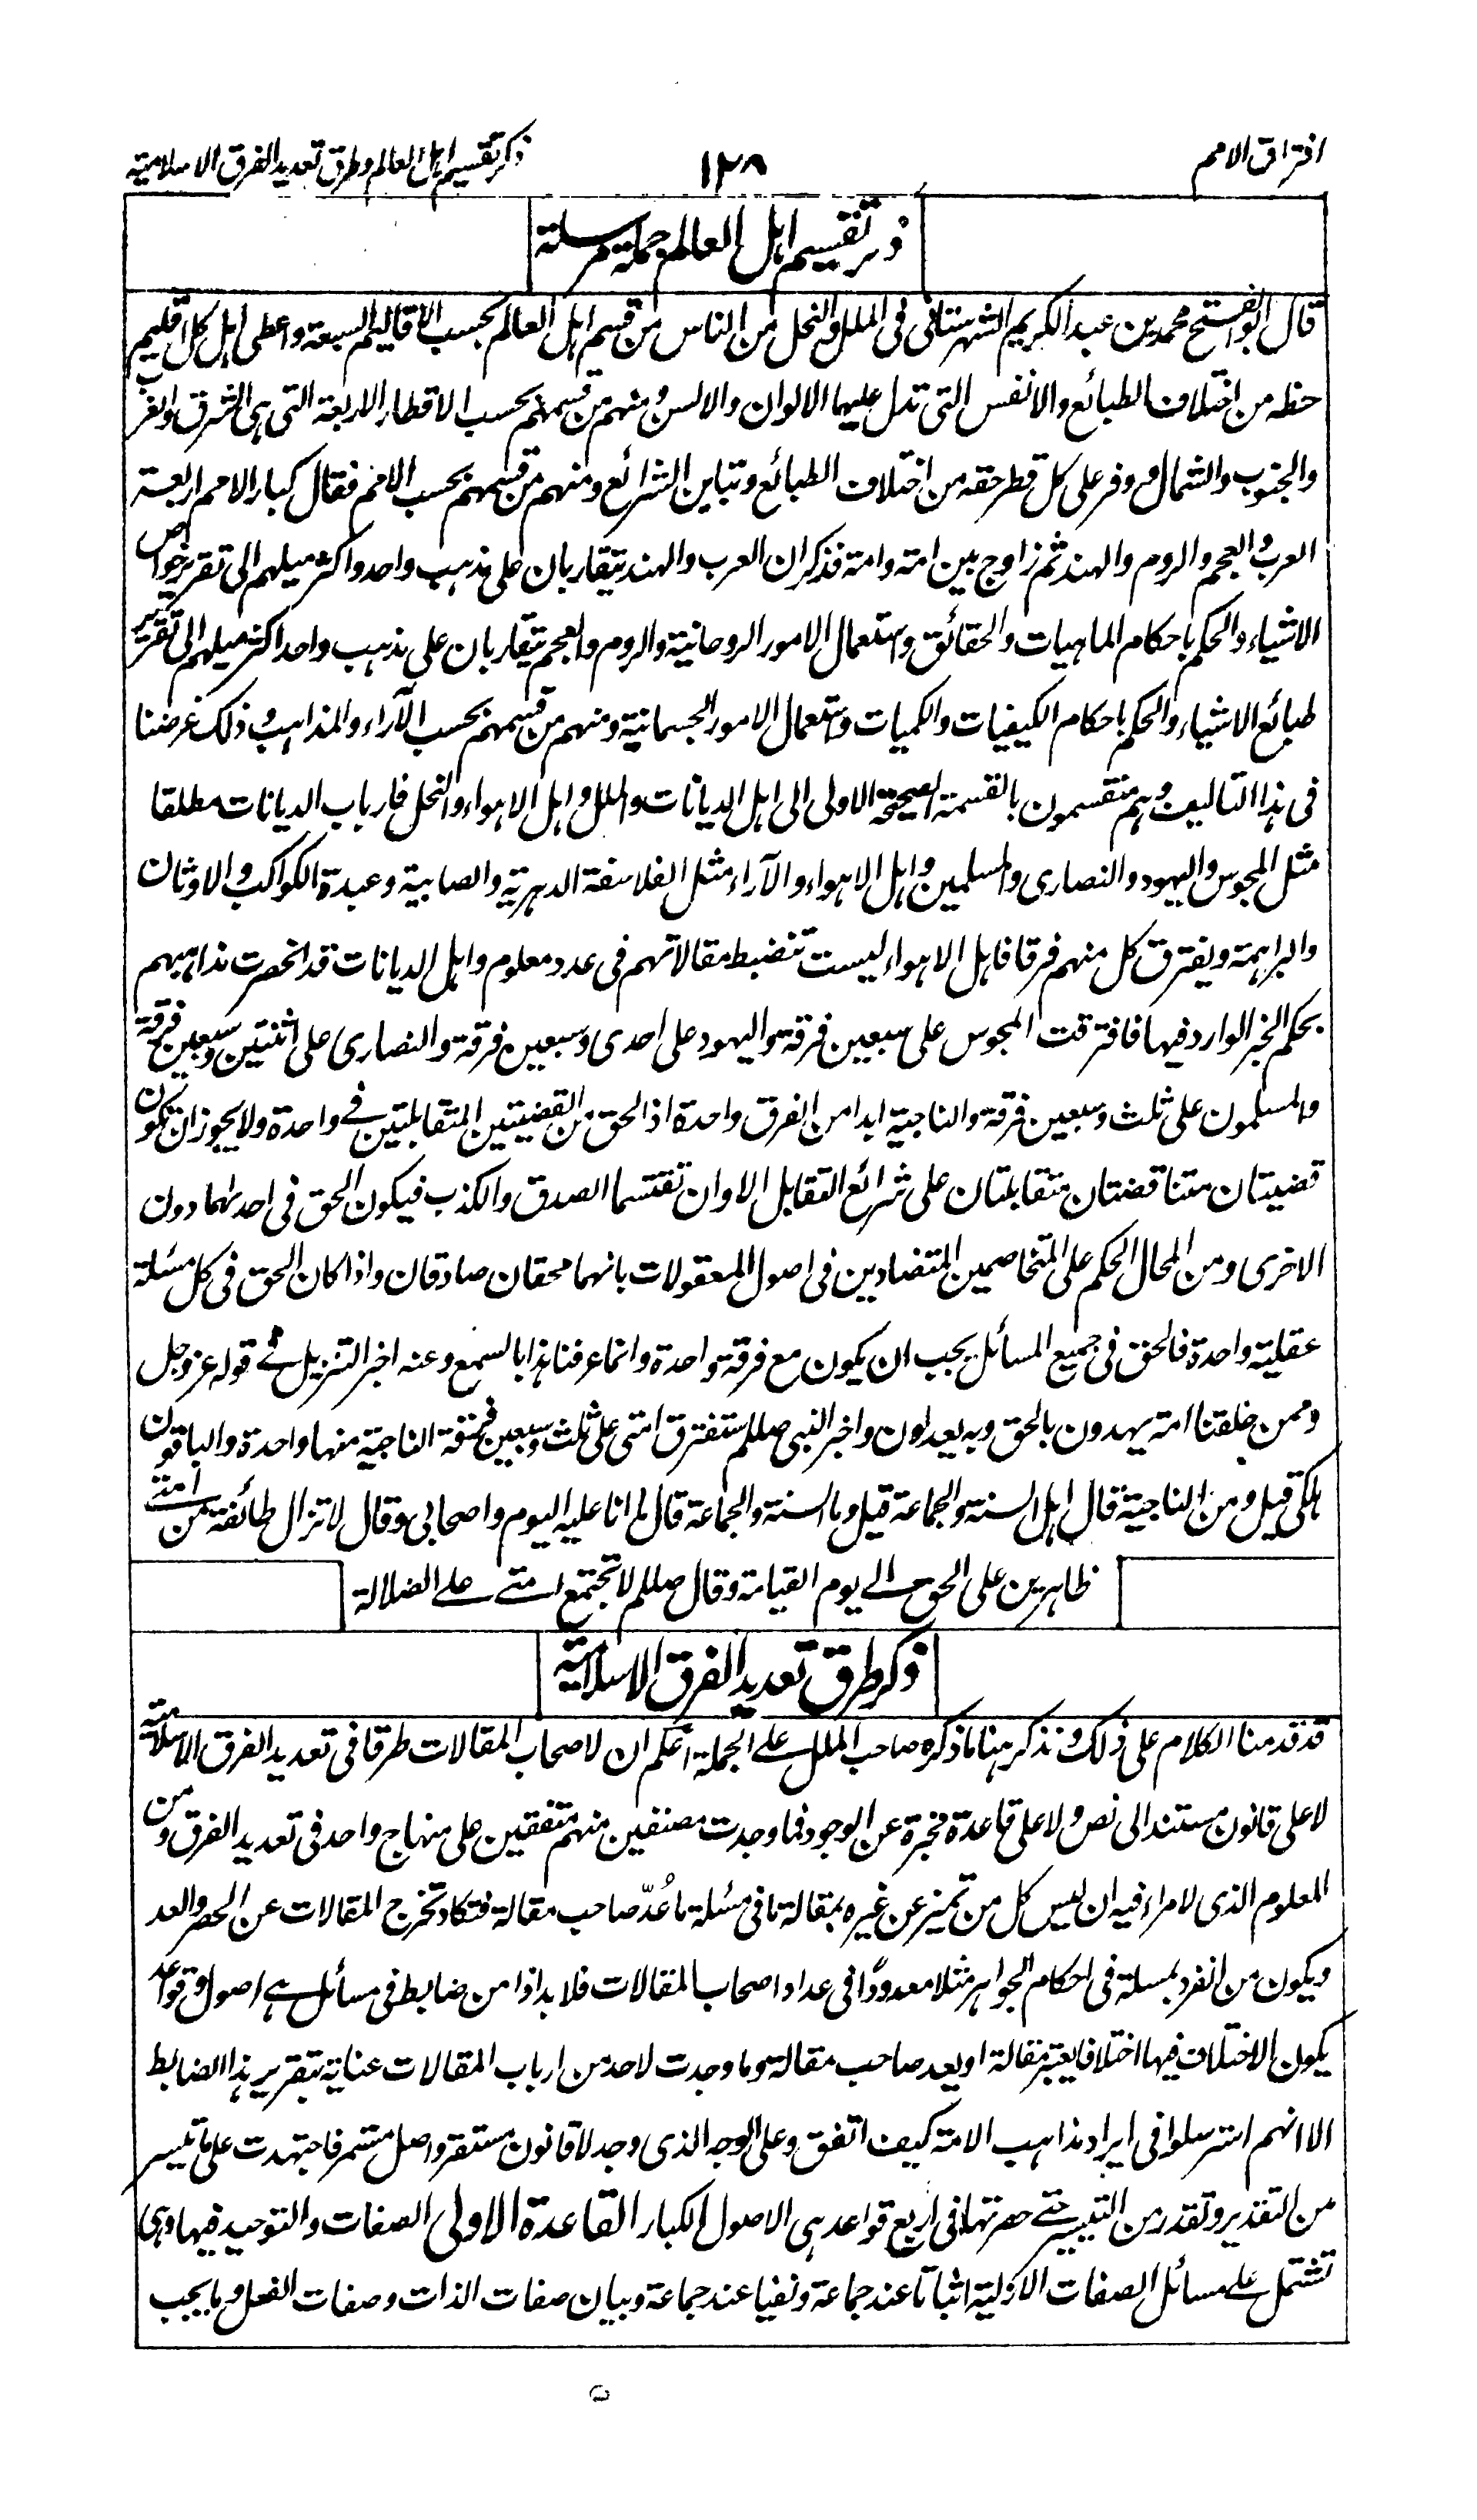 افتراق الامم
١٢٨
ذكر تقسيم اهل العالم وطرق تعديد الفرق الاسلامية
ذكر تقسيم اهل العالم جملة مرسلة
قال ابو الفتح محمد بن عبد الكريم الشهرستانى فى الملل والنحل من الناس من قسم اهل العالم بحسب الاقاليم السبعة واعطى اهل كل اقليم
حظه من اختلاف الطبائع والانفس التى تدل عليها الالوان والالسن ومنهم من قسمهم بحسب الاقطار الاربعة التى هى الشرق والغر
والجنوب والشمال ووفر على كل قطر حقه من اختلاف الطبائع وتباين الشرائع ومنهم من قسمهم بحسب الامم فقال كبار الامم اربعة
العرب والعجم والروم والهند ثم زاوج بين امة وامة فذكر ان العرب والهند يتقاربان على مذهب واحد واكثر ميلهم الى تقرير خواص
الاشياء والحكم باحكام الماهيات والحقائق واستعمال الامور الروحانية والروم والعجم يتقاربان على مذهب واحد اكثر ميلهم الى تقرير
طبائع الاشياء والحكم باحكام الكيفيات والكميات واستعمال الامور الجسمانية ومنهم من قسمهم بحسب الآراء والمذاهب وذلك غرضنا
فى هذا التاليف وهم منقسمون بالقسمة الصحيحة الاولى الى اهل الديانات والملل واهل الاهواء والنحل فارباب الديانات مطلقا
مثل المجوس واليهود والنصارى والمسلمين واهل الاهواء والآراء مثل الفلاسفة الدهرية والصابية وعبدة الكواكب والاوثان
والبراهمة ويفترق كل منهم فرقا فاهل الاهواء ليست تنضبط مقالاتهم فى عدد معلوم واهل الديانات قد انحصرت مذاهبهم
بحكم الخبر الوارد فيها فافترقت المجوس على سبعين فرقة واليهود على احدى وسبعين فرقة والنصارى على اثنتين وسبعين فرقة
والمسلمون على ثلث وسبعين فرقة والناجية ابدا من الفرق واحدة اذ الحق من القضيتين المتقابلتين فى واحدة ولا يجوز ان تكون
قضيتان متناقضتان متقابلتان على شرائع التقابل الا وان تقتسما الصدق والكذب فيكون الحق فى احدهما دون
الاخرى ومن المحال الحكم على المتخاصمين المتضادين فى اصول المعقولات بانهما محقان صادقان واذا كان الحق فى كل مسئلة
عقلية واحدة فالحق فى جميع المسائل يجب ان يكون مع فرقة واحدة وانما عرفنا هذا بالسمع وعنه اخبر التنزيل فى قوله عز وجل
وممن خلقنا امة يهدون بالحق وبه يعدلون واخبر النبى صللم ستفترق امتى على ثلث وسبعين فرقة الناجية منها واحدة والباقون
هلكى قيل ومن الناجية قال اهل السنة والجماعة قيل وما السنة والجماعة قال ما انا عليه اليوم واصحابى وقال لا تزال طائفة من امتى
ظاهرين على الحق الى يوم القيامة وقال صللم لا تجتمع امتى على الضلالة
ذكر طرق تعديد الفرق الاسلامية
قد قدمنا الكلام على ذلك ونذكر هنا ما ذكره صاحب الملل على الجملة اعلم ان لاصحاب المقالات طرقا فى تعديد الفرق الاسلامية
لا على قانون مستند الى نص ولا على قاعدة مخبرة عن الوجود فما وجدت مصنفين منهم متفقين على منهاج واحد فى تعديد الفرق ومن
المعلوم الذى لا مراء فيه ان ليس كل من تميز عن غيره بمقالة ما فى مسئلة ما عُدّ صاحب مقالة فتكاد تخرج المقالات عن الحصر والعد
ويكون من انفرد بمسلة فى احكام الجواهر مثلا معدودًا فى عداد اصحاب المقالات فلا بد اذا من ضابط فى مسائل هى اصول وقواعد
يكون الاختلاف فيها اختلافا يعتبر مقالة او يعد صاحب مقالة وما وجدت لاحد من ارباب المقالات عناية بتقرير هذا الضابط
الا انهم استرسلوا فى ايراد مذاهب الامة كيف اتفق وعلى الوجه الذى وجد لا قانون مستقر واصل مستمر فاجتهدت على ما تيسر
من التقدير وتقدر من التيسير حتى حصرتها فى اربع قواعد هى الاصول الكبار القاعدة الاولى الصفات والتوحيد فيها وهى
تشتمل على مسائل الصفات الازلية اثباتا عند جماعة ونفيا عند جماعة وبيان صفات الذات وصفات الفعل وما يجب